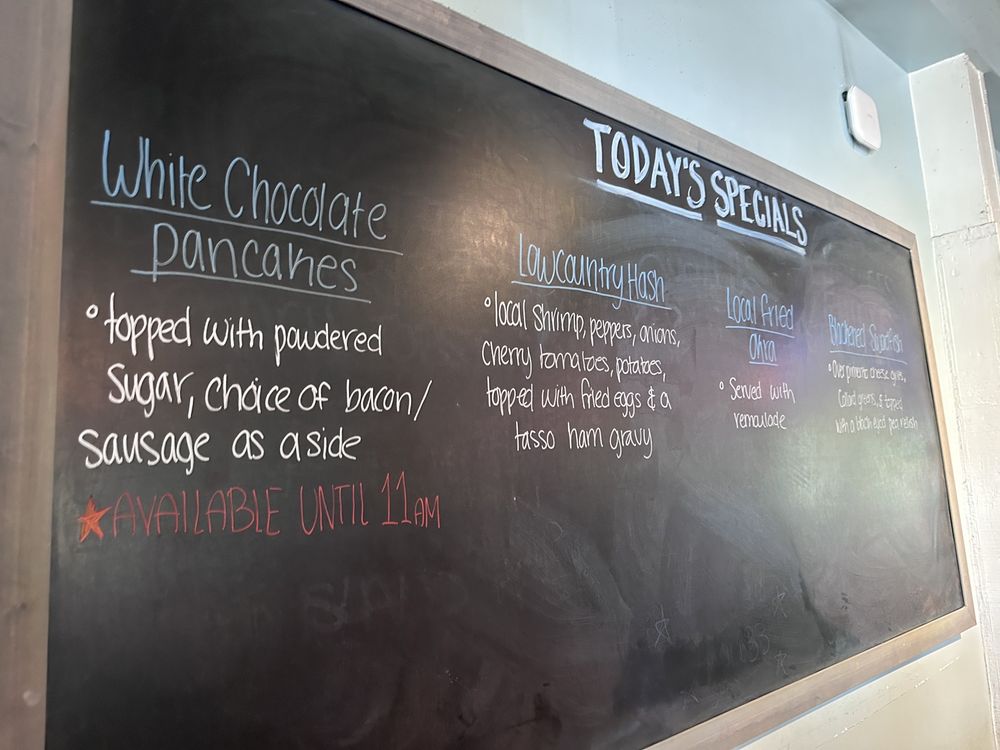 TODAY'S SPECIALS
White Chocolate
pancakes
• topped with powdered
Sugar, choice of bacon/
sausage as a side
★ AVAILABLE UNTIL 11AM
Lowcountry Hash
• local shrimp, peppers, onions,
cherry tomatoes, potatoes,
topped with fried eggs & a
tasso ham gravy
Local Fried
Okra
• Served with
remoulade
Blackened Swordfish
• Over pimento cheese grits,
Collard greens, & topped
with a black eyed pea relish